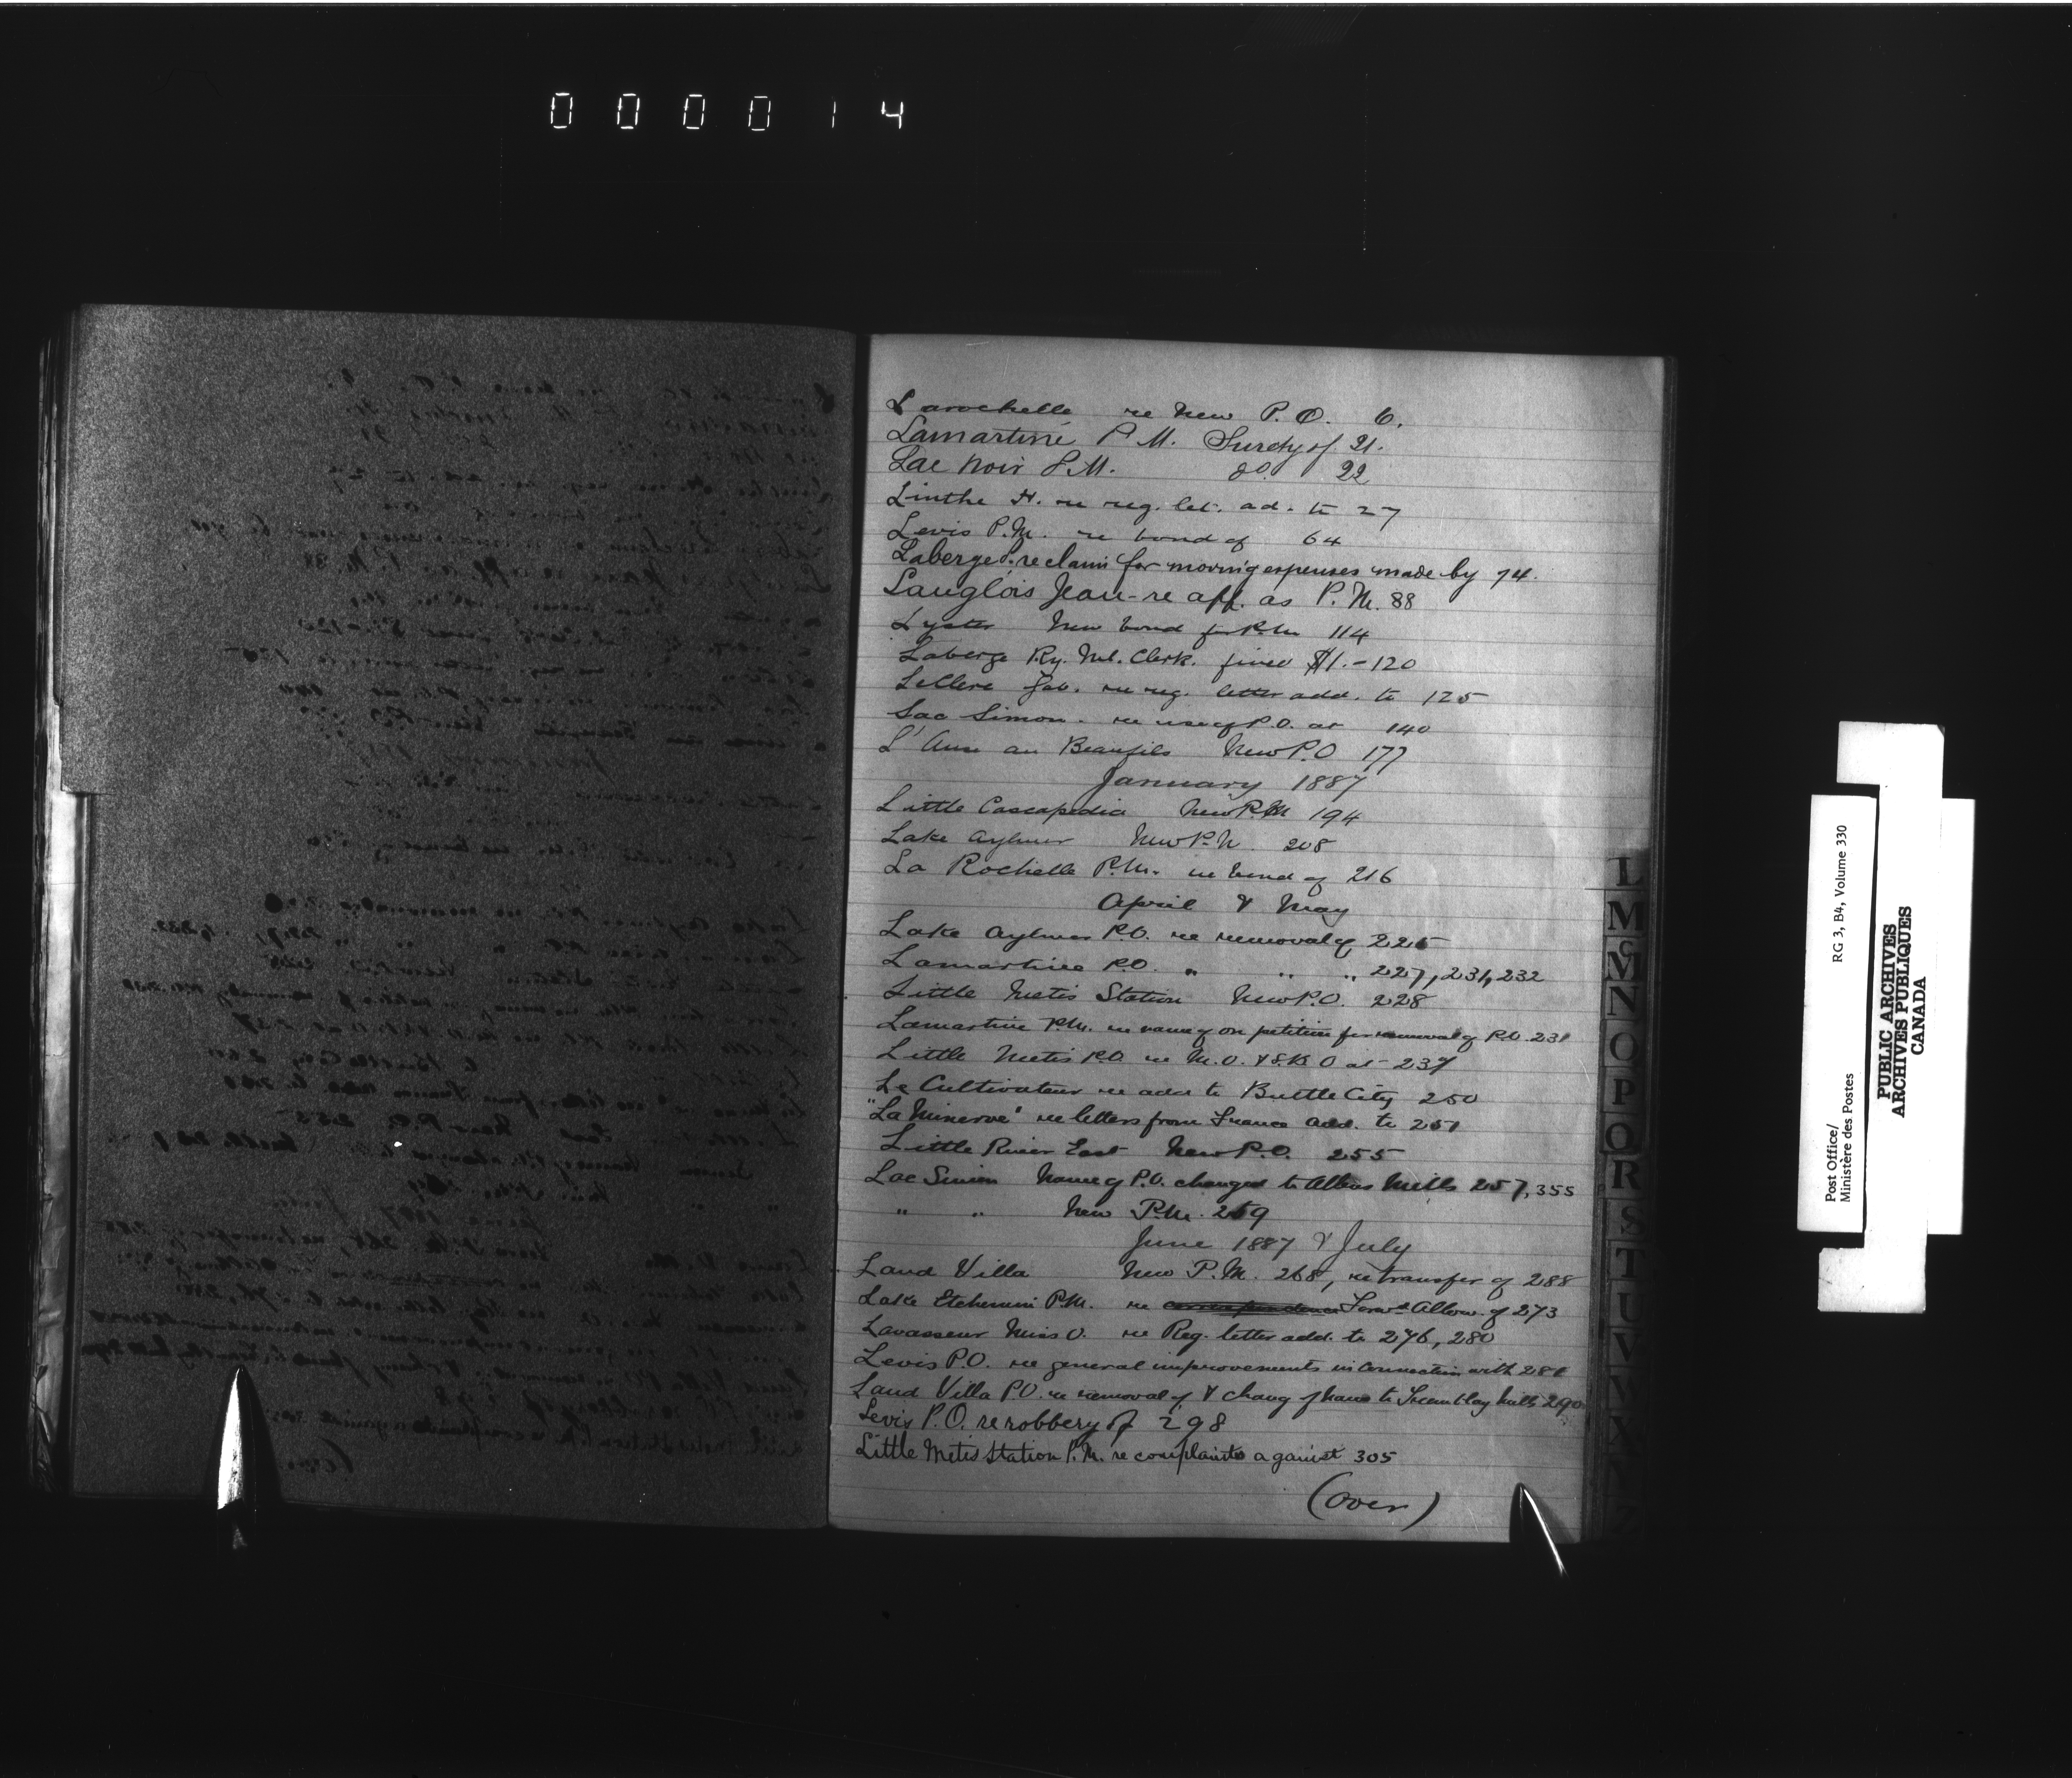 000014
Larochelle re New P.O. 6.
Lamartine P.M. Surety of 21.
Lac Noir P.M. do. 22
Linthe H. re reg. let. ad. to 27
Levis P.M. re bond of 64
Laberge P. re claim for moving expenses made by 74.
Langlois Jean - re app. as P.M. 88
Lyster New bond for P.M. 114
Laberge Ry. Ml. Clerk. fined $1. - 120
LeClerc Jab. re reg. letter add. to 125
Lac Simon - re use of P.O. at 140
L'Anse au Beaufils New P.O 177
January 1887
Little Cascapedia New P.M 194
Lake Aylmer New P.M. 208
La Rochelle P.M. re bond of 216
April & May
Lake Aylmer P.O. re removal of 225
Lamartine P.O. " " " 227, 231, 232
Little Metis Station New P.O. 228
Lamartine P.M. re name of on petition for removal of P.O. 231
Little Metis P.O. re M.O. & S.B. O at - 237
Le Cultivateur re add to Buttle City 250
"La Minerve" re letters from France add. to 251
Little River East New P.O. 255
Lac Simon Name of P.O. changed to Albas Mills 257, 355
" " New P.M. 259
June 1887 & July
Laud Villa New P.M. 268, re transfer of 288
Lake Etchemin P.M. re correspondence Forwd. Allow. of 273
Lavasseur Miss O. re Reg. letter add. to 276, 280
Levis P.O. re general improvements in connection with 281
Laud Villa P.O. re removal of & chang of name to Tremblay Mills 290
Levis P.O. re robbery of 298
Little Metis Station P.M. re complaints against 305
(over)
L
M
Mc
N
O
P
Q
R
S
T
U
V
W
Post Office/
Ministère des Postes
RG 3, B4, Volume 330
PUBLIC ARCHIVES
ARCHIVES PUBLIQUES
CANADA